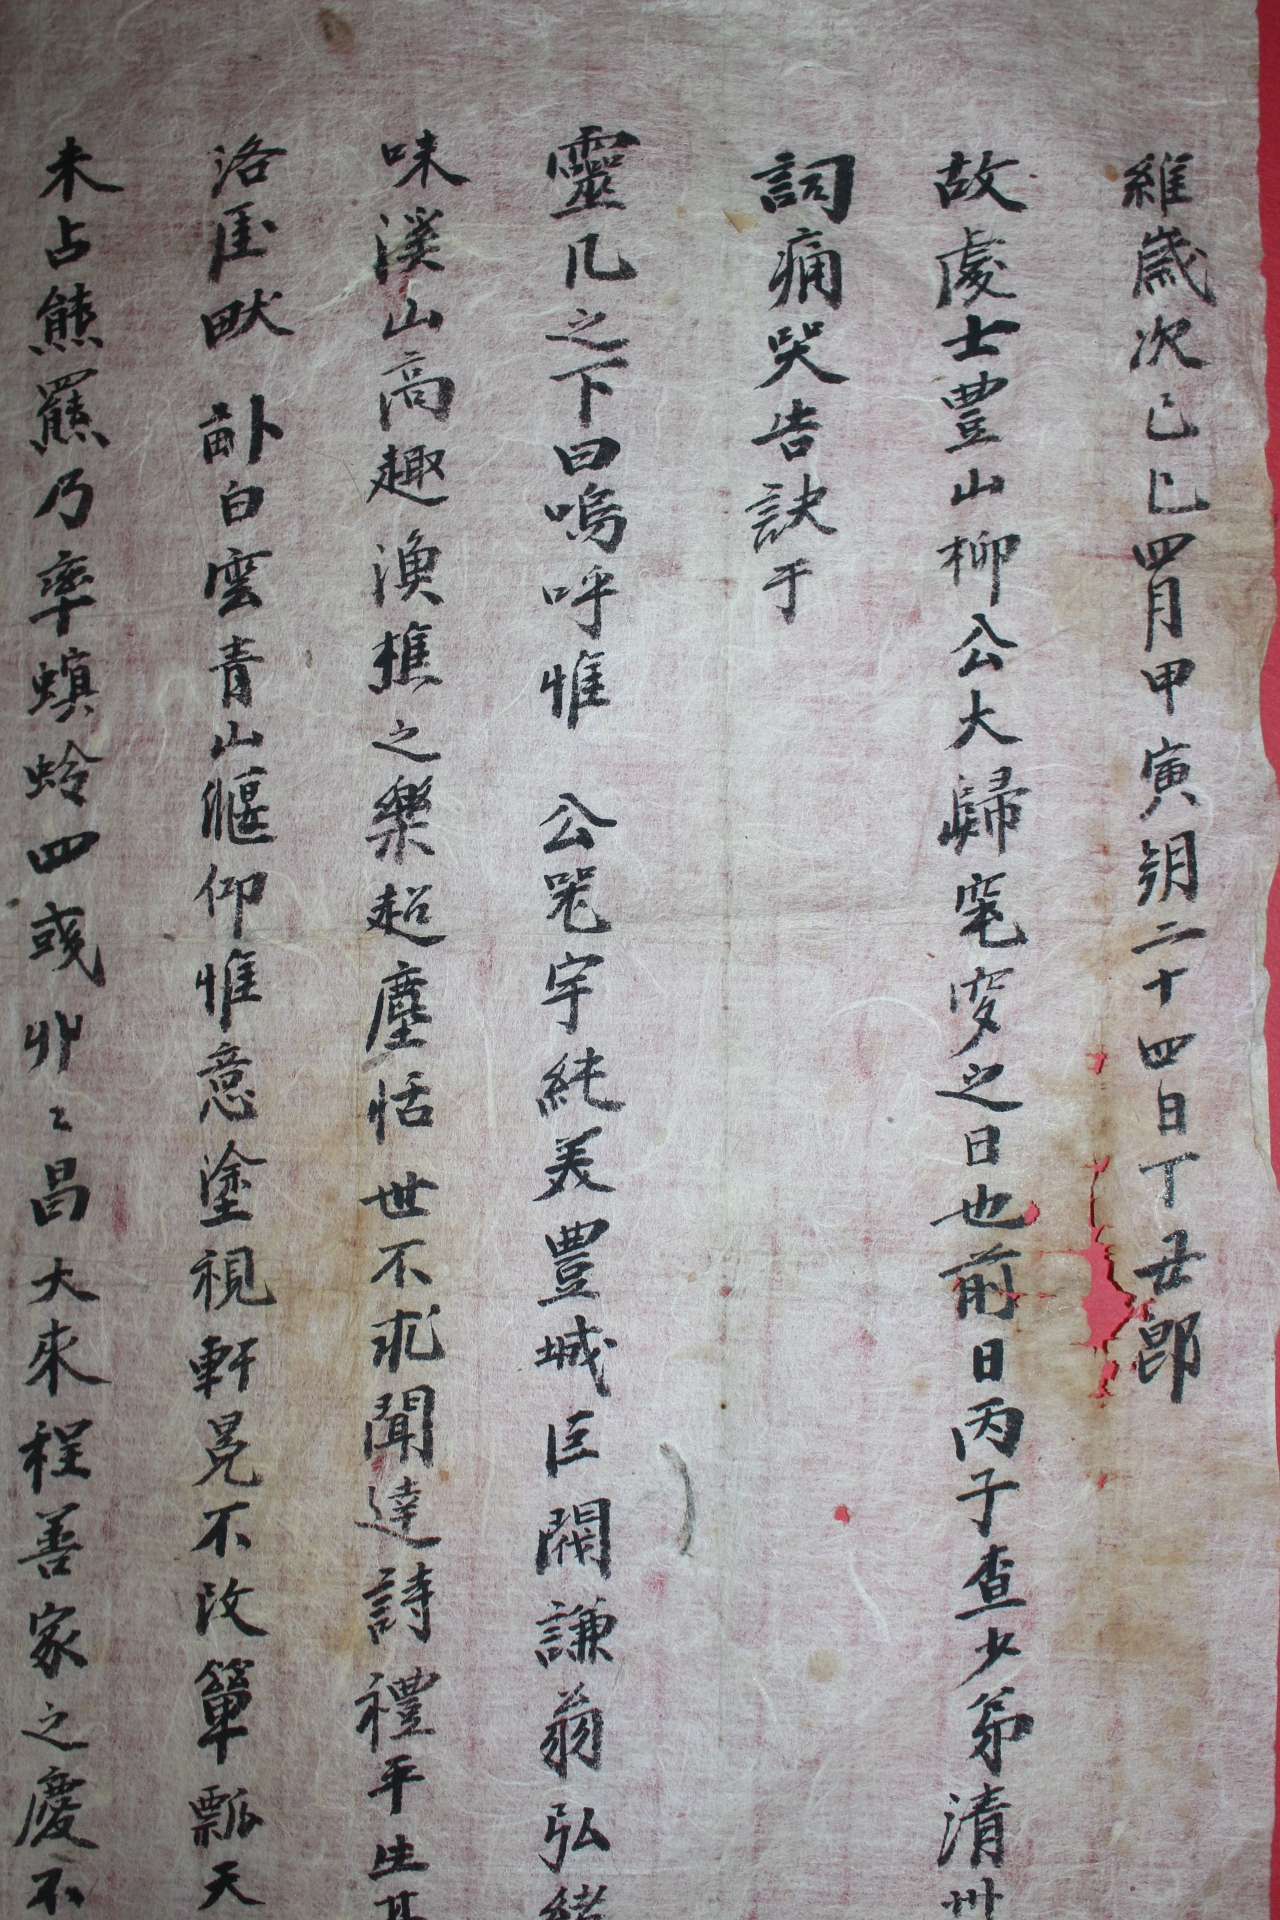 維歲次己巳四月甲寅朔二十四日丁丑卽
故處士豊山柳公大歸窀穸之日也前日丙子查少弟清州
詞痛哭告訣于
靈几之下曰嗚呼惟 公器宇純美豊城巨閥謙翁弘緒
味溪山高趣漁樵之樂超塵恬世不求聞達詩禮平生其
洛厓畎畝卧白雲青山偃仰惟意塗視軒冕不改簞瓢天
未占熊羆乃率螟蛉四彧丱〻昌大來程善家之慶不